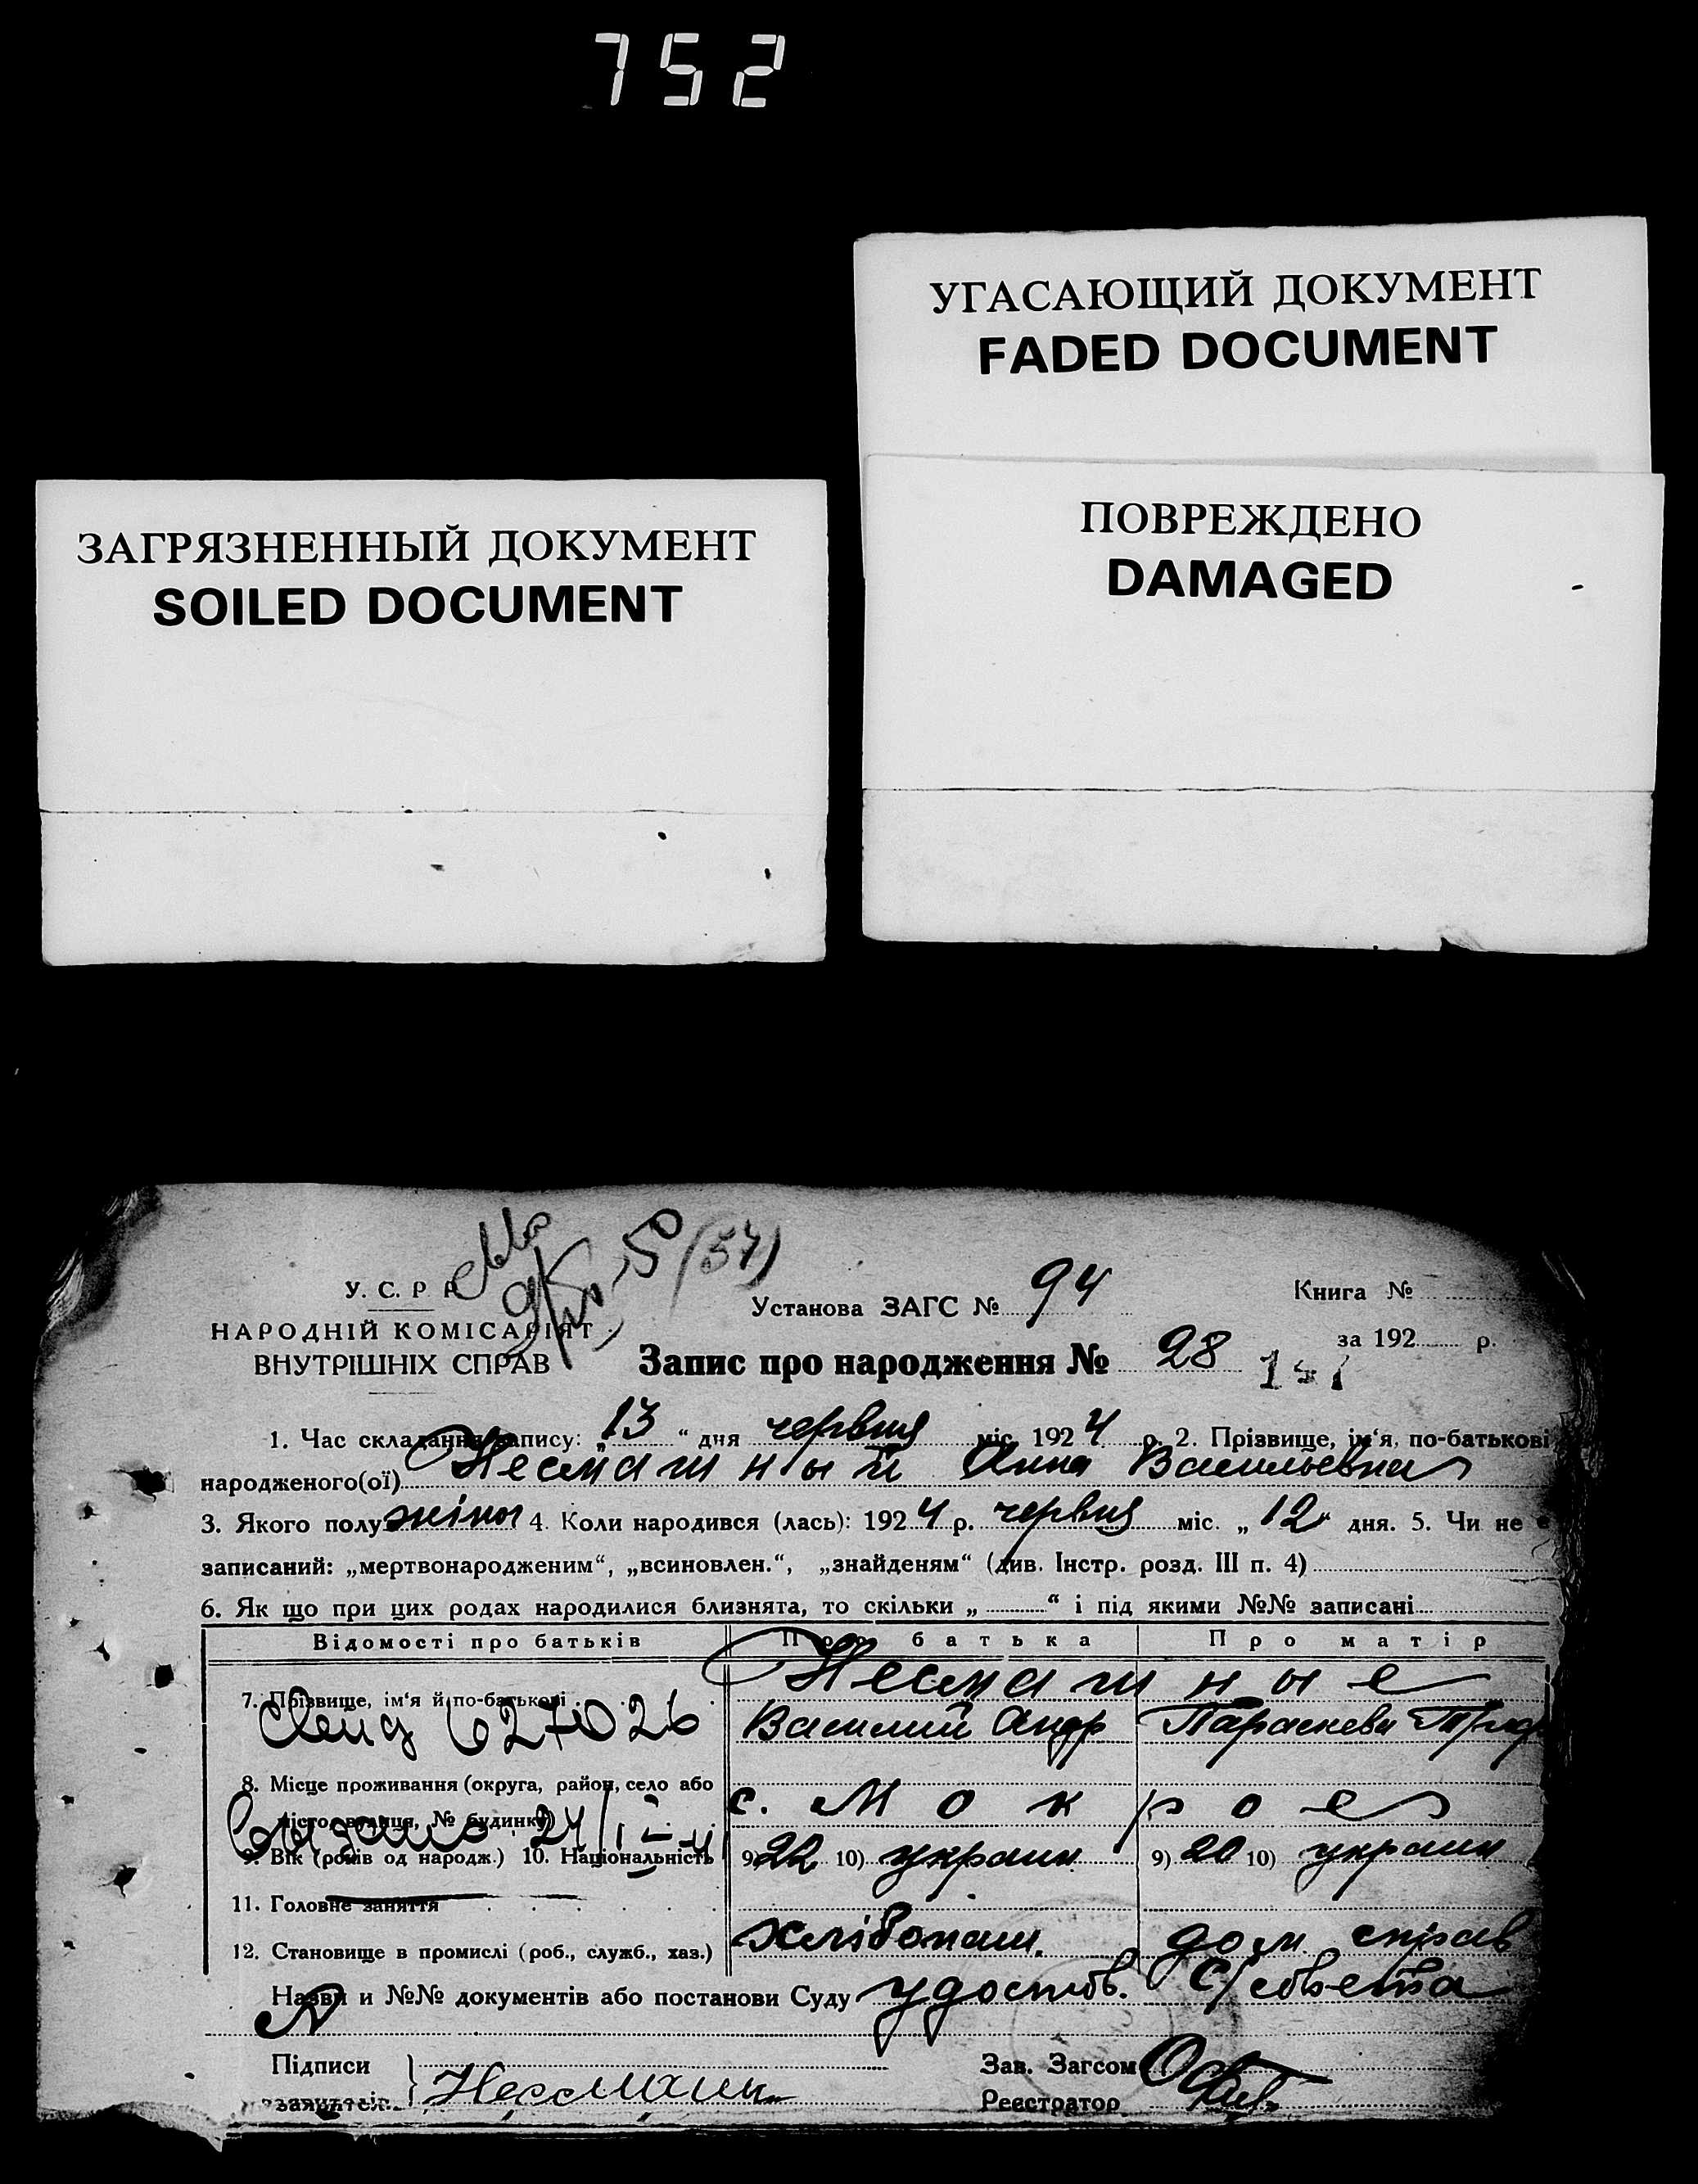 752
УГАСАЮЩИЙ ДОКУМЕНТ
FADED DOCUMENT
ЗАГРЯЗНЕННЫЙ ДОКУМЕНТ
SOILED DOCUMENT
ПОВРЕЖДЕНО
DAMAGED
50 (54)
У. С. Р Р.
НАРОДНІЙ КОМІСАРІЯТ
ВНУТРІШНІХ СПРАВ
Установа ЗАГС № 94
Книга №
за 192 р.
Запис про народження № 28
1. Час складання запису: „13“ дня червня міс. 1924 р. 2. Прізвище, ім‘я, по-батькові
народженого(ої) Несмашный Анна Васильевна
3. Якого полу жіноч 4. Коли народився (лась): 1924 р. червня міс. „12“ дня. 5. Чи не є
записаний: „мертвонародженим“, „всиновлен.“, „знайденям“ (див. Інстр. розд. III п. 4)
6. Як що при цих родах народилися близнята, то скільки „ “ і під якими №№ записані
Відомості про батьків Про батька Про матір
Несмашные
7. Прізвище, ім‘я й по-батькові Василий Андр Параскева
627026
8. Місце проживання (округа, район, село або
місто, вулиця, № будинку) с. Мокрое
9. Вік (років од народж.) 10. Національність 9) 22 10) украин 9) 20 10) украин
11. Головне заняття
12. Становище в промислі (роб., служб., хаз.) хлібопаш. дом. справ
Назви и №№ документів або постанови Суду удостов. С/совета
Підписи
заявителів
Зав. Загсом
Реєстратор